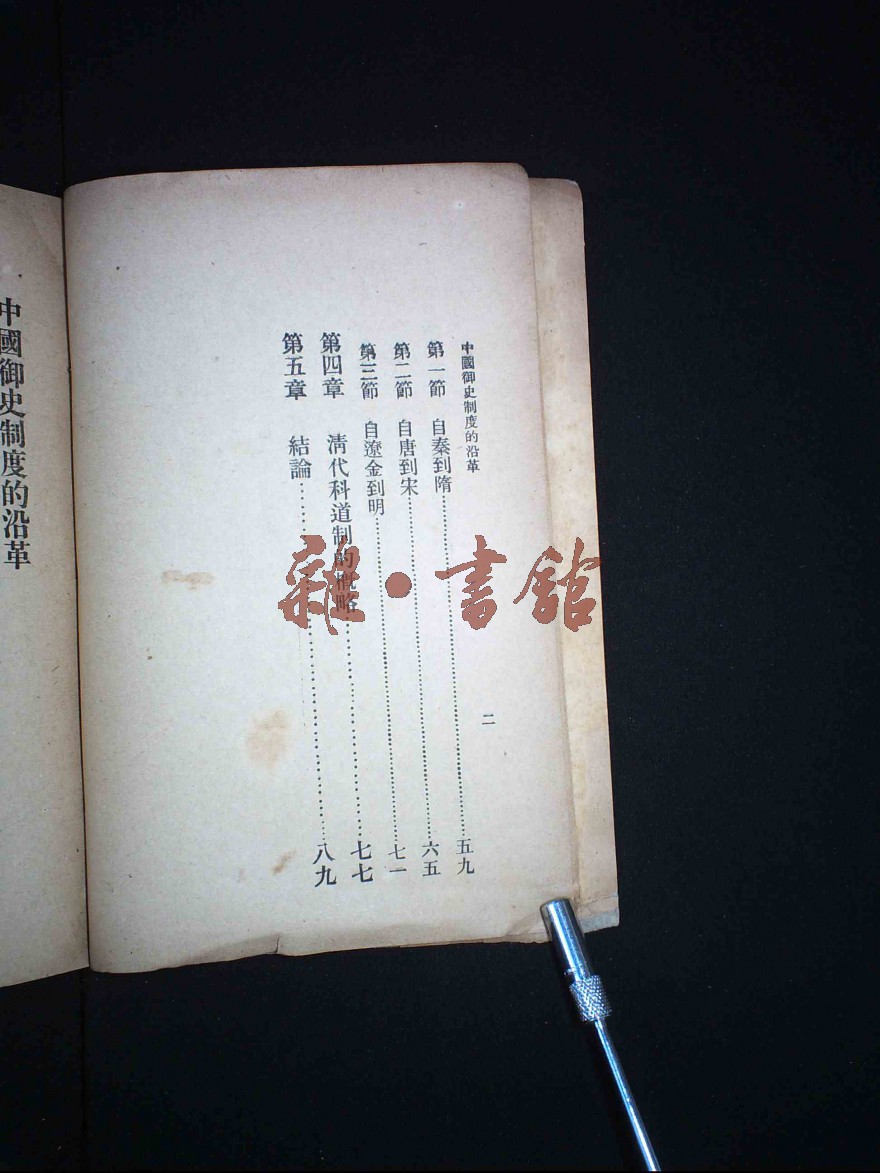 中國御史制度的沿革
二
第一節 自秦到隋……五九
第二節 自唐到宋……六五
第三節 自遼金到明……七一
第四章 清代科道制的概略……七七
第五章 結論……八九
中國御史制度的沿革
雜·書館